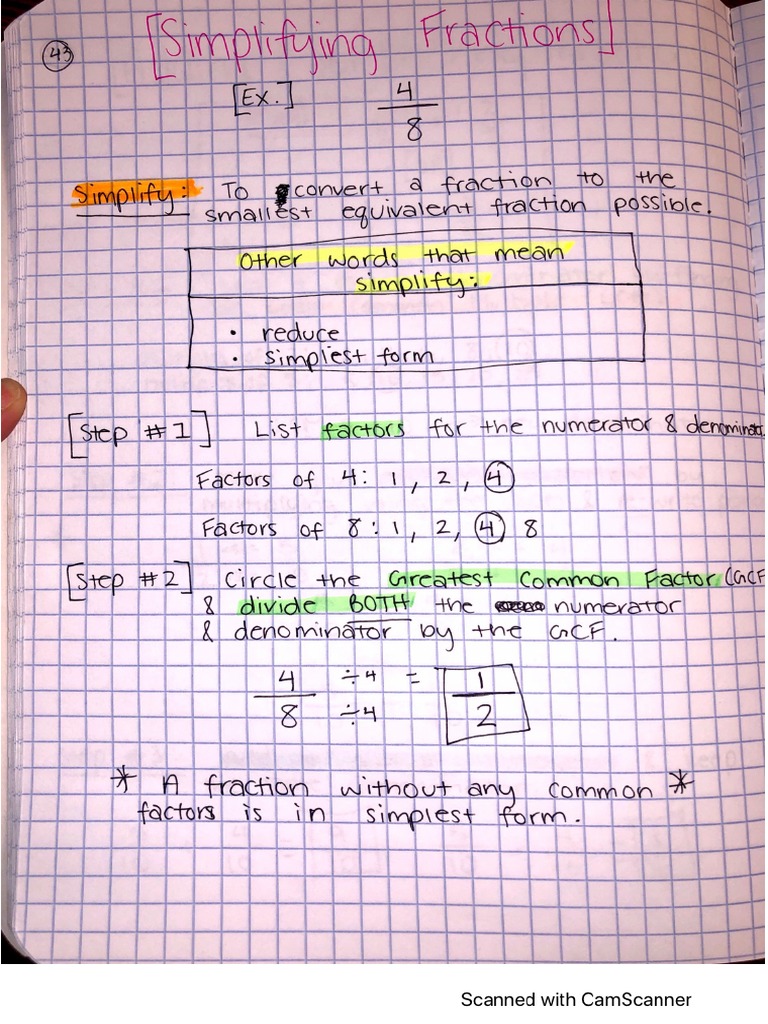 43
[Simplifying Fractions]
[Ex.] 4
8
Simplify: To convert a fraction to the
smallest equivalent fraction possible.
Other words that mean
simplify:
• reduce
• simplest form
[Step #1] List factors for the numerator & denominator.
Factors of 4: 1, 2, 4
Factors of 8: 1, 2, 4 8
[Step #2] Circle the Greatest Common Factor (GCF
& divide BOTH the numerator
& denominator by the GCF.
4 ÷4 = 1
8 ÷4 2
* A fraction without any common *
factors is in simplest form.
Scanned with CamScanner